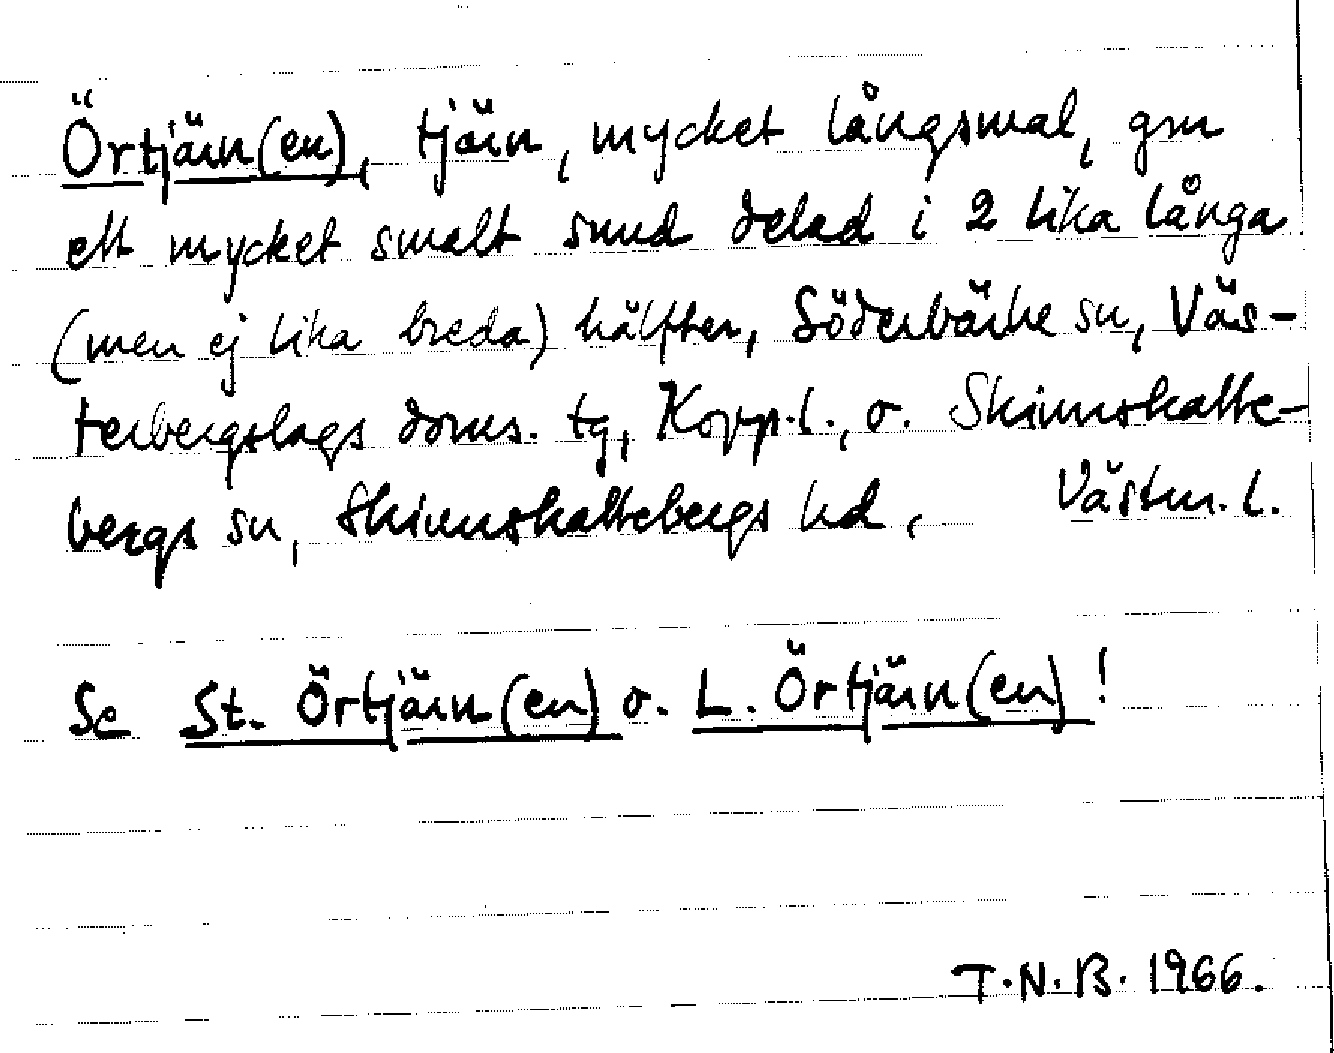 Örtjärn(en), tjärn, mycket långsmal, gm
ett mycket smalt sund delad i 2 lika långa
(men ej lika breda) hälfter, Söderbärke sn, Väs-
terbergslags doms. tg, Kopp. l., o. Skinnskatte-
bergs sn, Skinnskattebergs hd, Västm. l.
Se St. Örtjärn(en) o. L. Örtjärn(en)!
T.N.B. 1966.